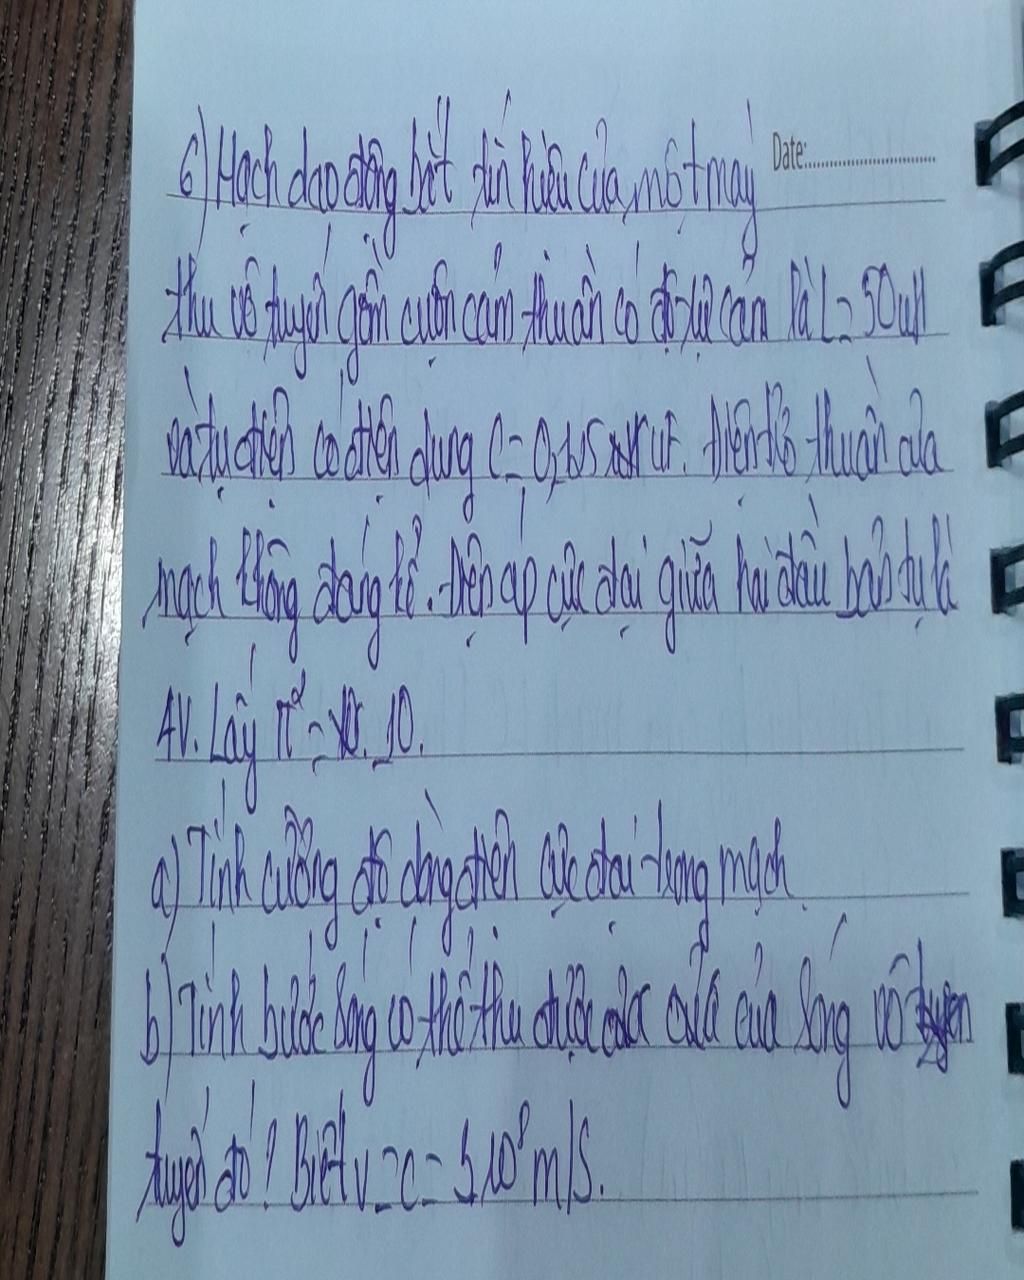 6) Mạch dao động bắt tín hiệu của một máy
Date:
thu vô tuyến gồm cuộn cảm thuần có độ tự cảm là L = 50uH
và tụ điện có điện dung C = uF. Điện trở thuần của
mạch không đáng kể. Điện áp cực đại giữa hai đầu bản tụ là
4V. Lấy π² = 10.
a) Tính cường độ dòng điện cực đại trong mạch.
b) Tính bước sóng có thể thu được của sóng vô
tuyến đó? Biết v = c = 10⁸ m/s.